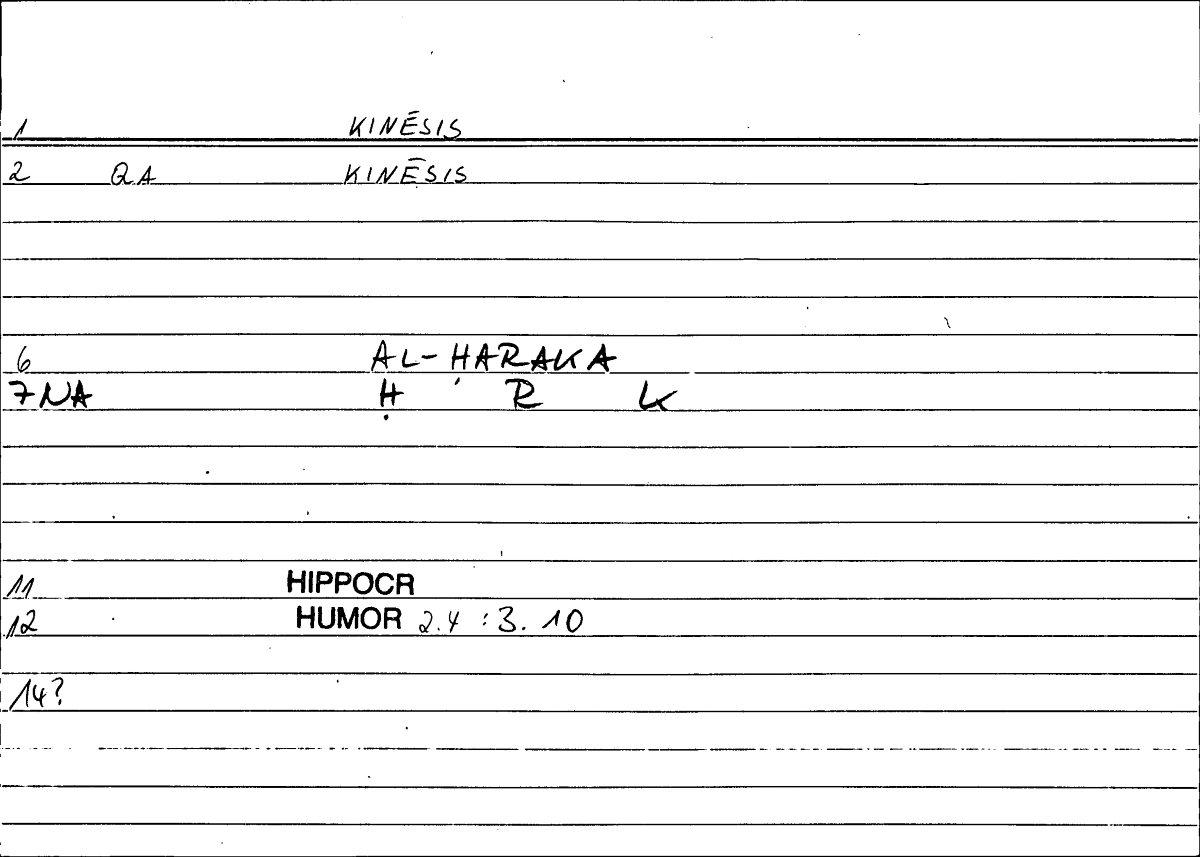 1 KINĒSIS
2 QA KINĒSIS
6 AL-ḤARAKA
7NA Ḥ R K
11 HIPPOCR
12 HUMOR 2.4 : 3. 10
14?